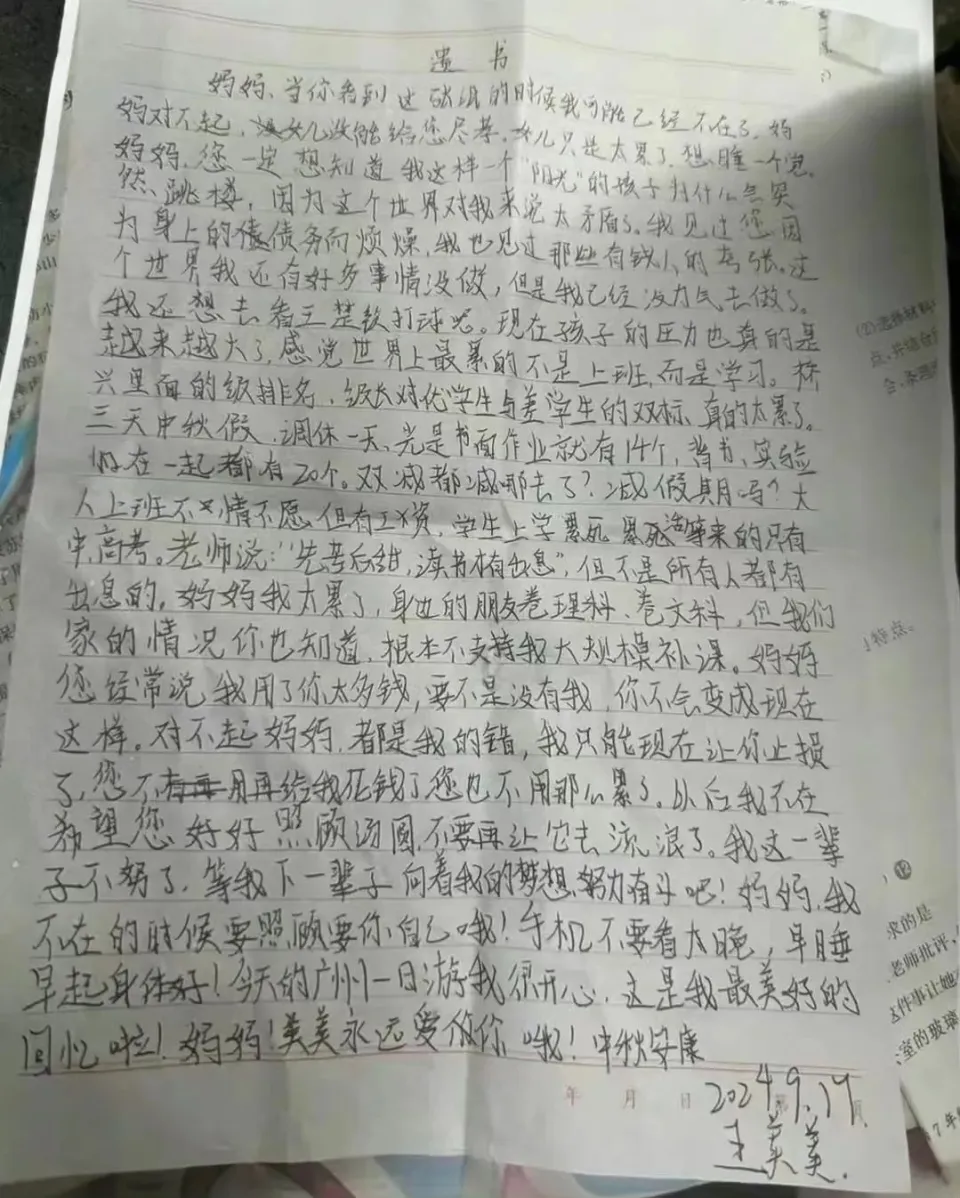 遗书
妈妈、当你看到这张纸的时候我可能已经不在了,妈
妈对不起,女儿没能给您尽孝,女儿只是太累了想睡一个觉。
妈妈,您一定想知道我这样一个"阳光"的孩子为什么会突
然跳楼,因为这个世界对我来说太矛盾了。我见过您因
为身上的债务而烦燥,我也见过那些有钱人的夸张。这
个世界我还有好多事情没做,但是我已经没力气去做了。
我还想去看王楚钦打球呢。现在孩子的压力也真的是
越来越大了,感觉世界上最累的不是上班,而是学习。桥
兴里面的级排名,级长对优学生与差学生的双标,真的太累了。
三天中秋假,调休一天、光是书面作业就有14个,背书、实验
加在一起都有20个。双减都减哪去了?减假期吗?大
人上班不情不愿、但有工资,学生上学累死累死活等来的只有
中高考。老师说:"先苦后甜,读书才有出息",但不是所有人都有
出息的,妈妈我太累了,身边的朋友卷理科、卷文科,但我们
家的情况你也知道,根本不支持我大规模补课。妈妈
您经常说我用了你太多钱,要不是没有我,你不会变成现在
这样。对不起妈妈,都是我的错,我只能现在让你止损
了,您不用再给我花钱了您也不用那么累了。以后我不在
希望您好好照顾汤圆不要再让它去流浪了。我这一辈
子不努了,等我下一辈子向着我的梦想努力奋斗吧!妈妈,我
不在的时候要照顾要你自己哦!手机不要看太晚,早睡
早起身体好!今天的广州一日游我很开心,这是我最美好的
回忆啦!妈妈!美美永远爱你哦!中秋安康
年 月 日
2024.9.17
王美美.
(2)
点、并结合
会、条
特点。
求的是
老师批评,
这件事让她
室的玻璃